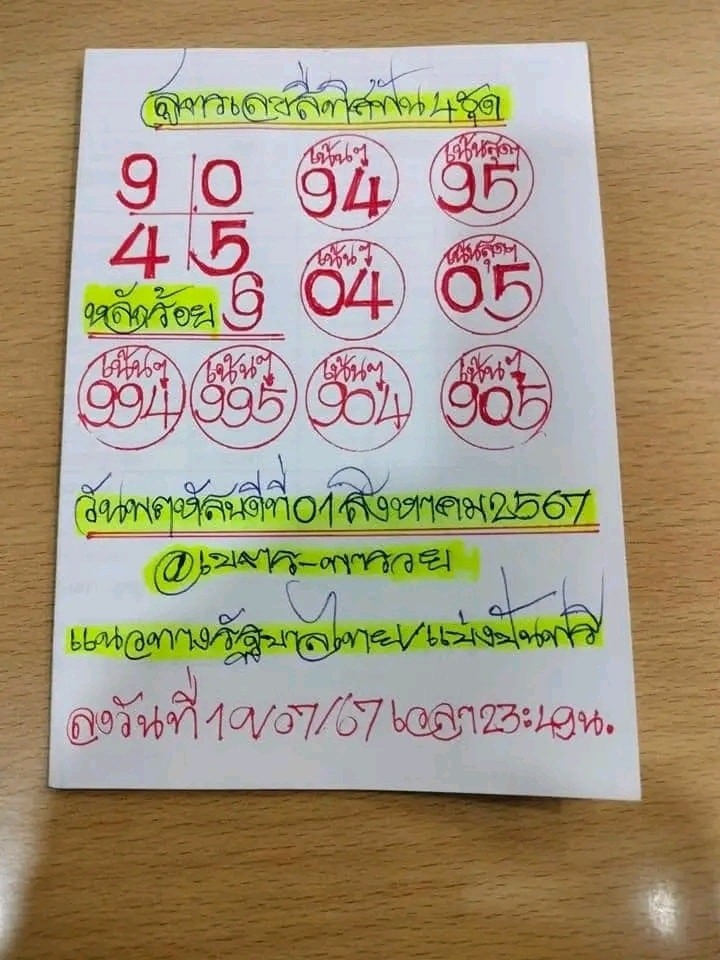 สูตรเลขสี่ทิศฟัน 4 ชุด
9 0
4 5
เน้นๆ
94
เน้นสุดๆ
95
เน้นๆ
04
เน้นสุดๆ
05
หลักร้อย 9
เน้นๆ
994
เน้นๆ
995
เน้นๆ
904
เน้นๆ
905
วันพฤหัสบดีที่ 01 สิงหาคม 2567
แนวทางรัฐบาลไทย/แบ่งปันฟรี
ลงวันที่ 19/07/67 เวลา 23:49น.